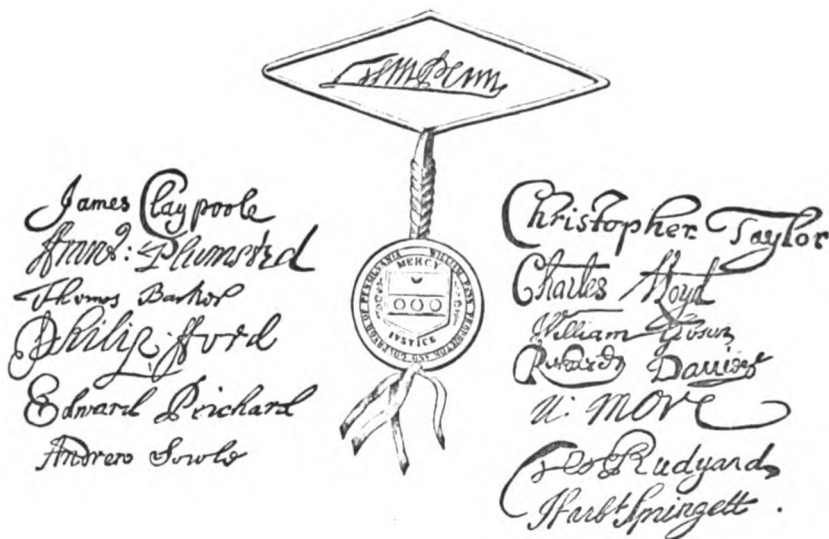 Wm Penn
James Claypoole
Franc: Plumsted
Thomas Barker
Philip Ford
Edward Prichard
Andrew Sowle
WILLIAM PENN AND GOVERNOR OF
MERCY
IVSTICE
Christopher Taylor
Charles Lloyd
William Gibson
Richard Davies
N: More
Rudyard
Harbt Springett.